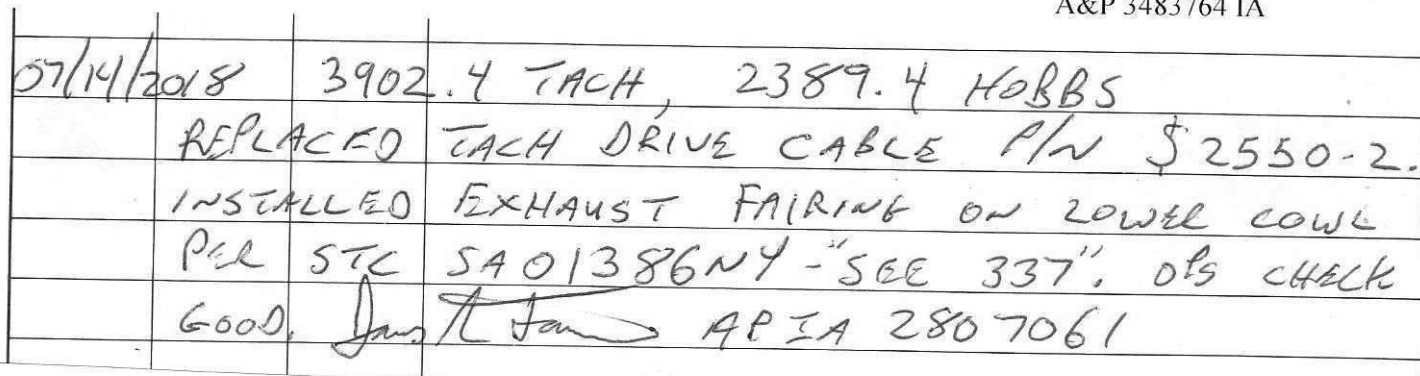 A&P 3483764 IA
07/14/2018 3902.4 TACH, 2389.4 HOBBS
REPLACED TACH DRIVE CABLE P/N $2550-2.
INSTALLED EXHAUST FAIRING ON LOWER COWL
PER STC SA01386NY - "SEE 337". OPS CHECK
GOOD. APIA 2807061